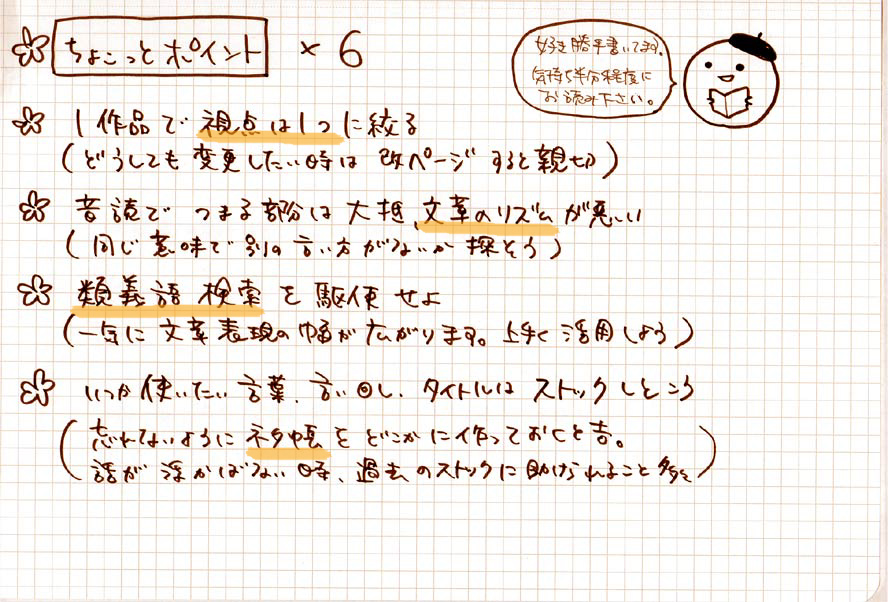 ちょこっとポイント ×6
好き勝手書いてます。
気持ち半分程度に
お読み下さい。
1作品で視点は1つに絞る
(どうしても変更したい時は改ページすると親切)
音読でつまる部分は大抵、文章のリズムが悪い
(同じ意味で別の言い方がないか探そう)
類義語検索を駆使せよ
(一気に文章表現の幅が広がります。上手く活用しよう)
いつか使いたい言葉、言い回し、タイトルはストックしとこう
(忘れないようにネタ帳をどこかに作っておくと吉。
話が浮かばない時、過去のストックに助けられること多々)